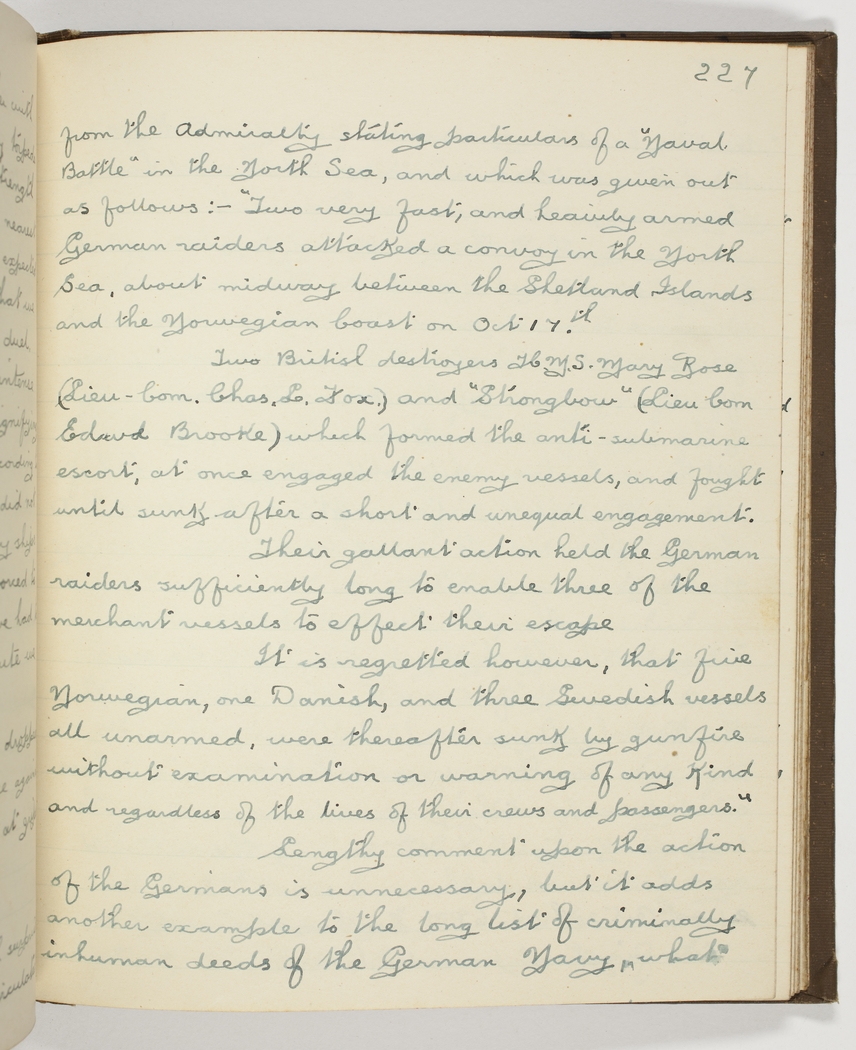 227
from the Admiralty stating particulars of a "Naval
Battle" in the North Sea, and which was given out
as follows :- "Two very fast, and heavily armed
German raiders attacked a convoy in the North
Sea, about midway between the Shetland Islands
and the Norwegian Coast on Oct 17.th
Two British destroyers H.M.S. Mary Rose
(Lieu-Com. Chas. L. Fox.) and "Strongbow" (Lieu Com
Edwd Brooke) which formed the anti-submarine
escort, at once engaged the enemy vessels, and fought
until sunk after a short and unequal engagement.
Their gallant action held the German
raiders sufficiently long to enable three of the
merchant vessels to effect their escape
It is regretted however, that five
Norwegian, one Danish, and three Swedish vessels
all unarmed, were thereafter sunk by gunfire
without examination or warning of any kind
and regardless of the lives of their crews and passengers."
Lengthy comment upon the action
of the Germans is unnecessary, but it adds
another example to the long list of criminally
inhuman deeds of the German Navy, "what"